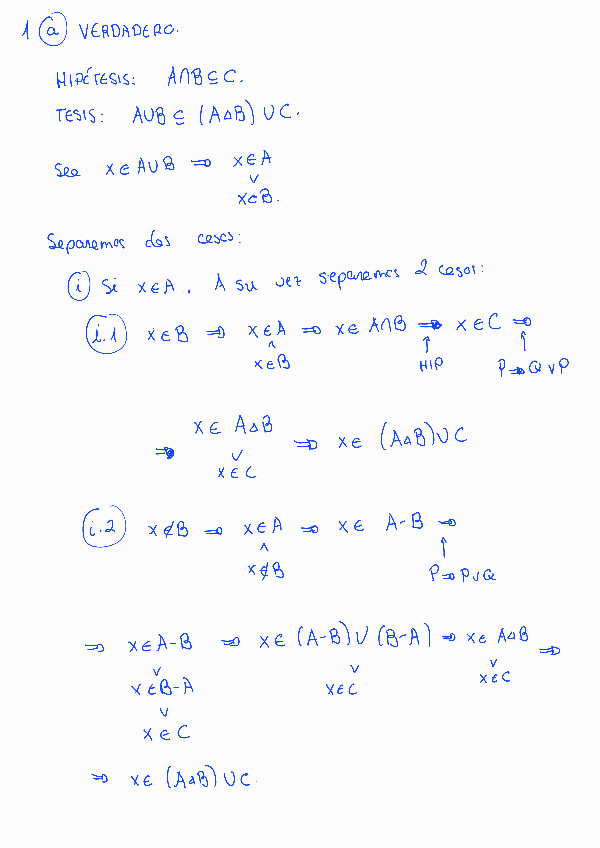 1 (a) VERDADERO.
HIPÓTESIS: A∩B ⊆ C.
TESIS: A∪B ⊆ (A△B) ∪ C.
Sea x ∈ A∪B ⇒ x ∈ A
∨
x ∈ B.
Separemos dos casos:
(i) Si x ∈ A. A su vez separemos 2 casos:
(i.1) x ∈ B ⇒ x ∈ A ⇒ x ∈ A∩B ⇒ x ∈ C ⇒
∧ ↑ ↑
x ∈ B HIP P ⇒ Q ∨ P
⇒ x ∈ A△B ⇒ x ∈ (A△B) ∪ C
∨
x ∈ C
(i.2) x ∉ B ⇒ x ∈ A ⇒ x ∈ A-B ⇒
∧ ↑
x ∉ B P ⇒ P ∨ Q
⇒ x ∈ A-B ⇒ x ∈ (A-B) ∪ (B-A) ⇒ x ∈ A△B ⇒
∨ ∨ ∨
x ∈ B-A x ∈ C x ∈ C
∨
x ∈ C
⇒ x ∈ (A△B) ∪ C.